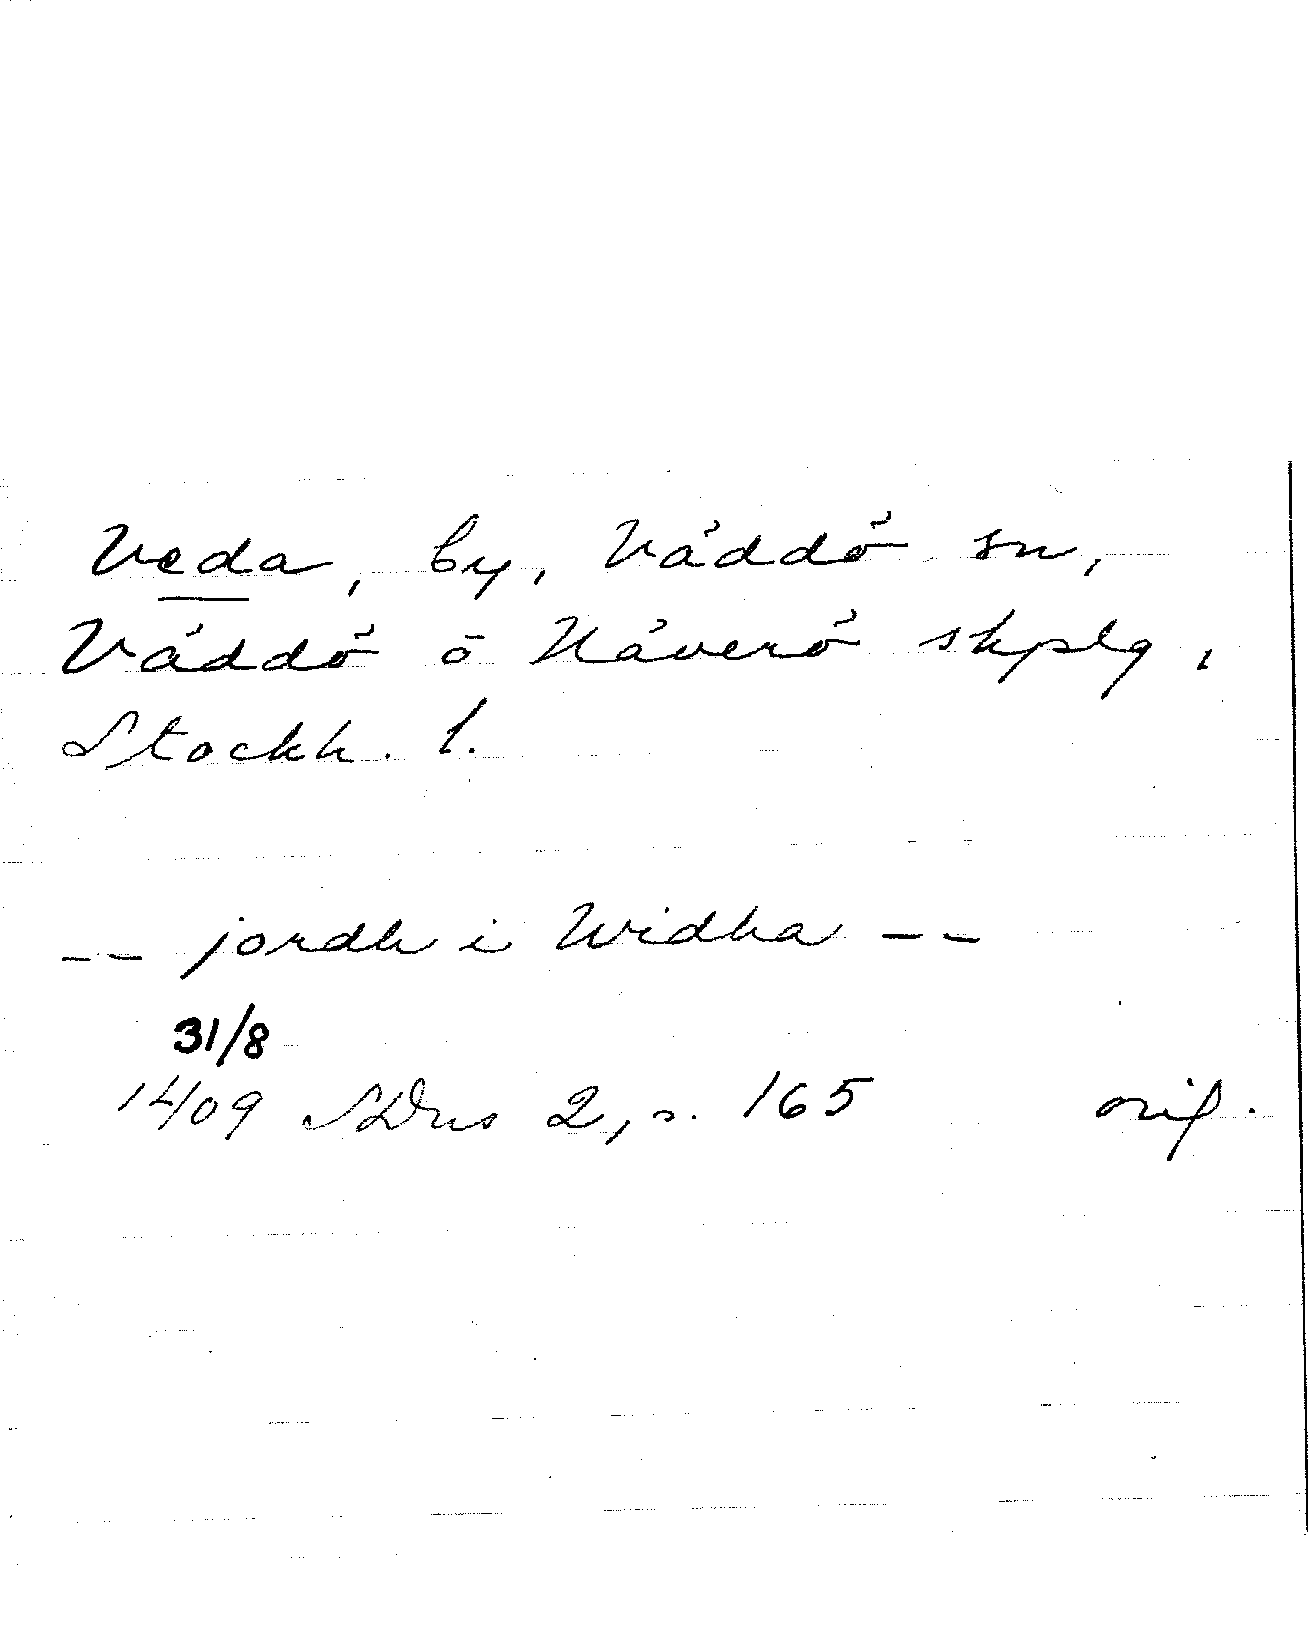 Veda, by, Väddö sn,
Väddö o Häverö skplg,
Stockh. l.
-- jordh i Widha --
31/8
1409 SDns 2, s. 165 orig.